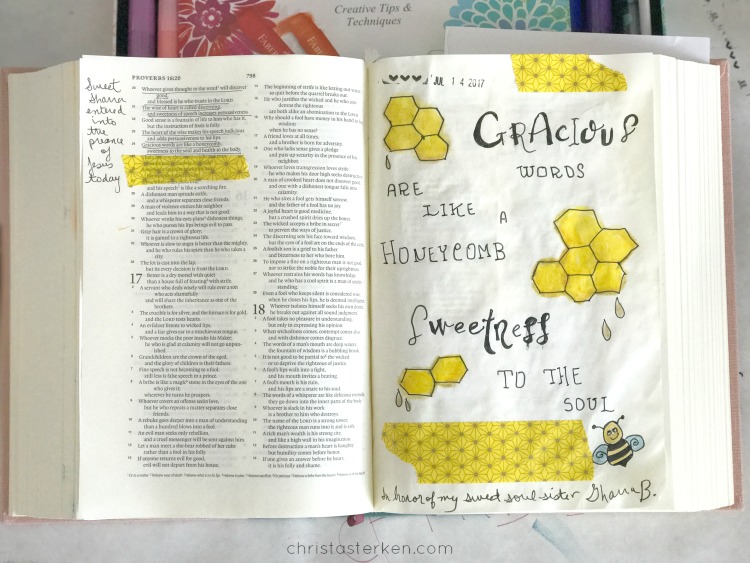 Creative Tips &
Techniques
FABER-CASTELL
PROVERBS 16:20
798
Sweet
Shana
entered
into
the
of
Jesus
today
20 Whoever gives thought to the word will discover
good,
and blessed is he who trusts in the LORD.
21 The wise of heart is called discerning,
and sweetness of speech increases persuasiveness.
22 Good sense is a fountain of life to him who has it,
but the instruction of fools is folly.
23 The heart of the wise makes his speech judicious
and adds persuasiveness to his lips.
24 Gracious words are like a honeycomb,
sweetness to the soul and health to the body.
and his speech is like a scorching fire.
28 A dishonest man spreads strife,
and a whisperer separates close friends.
29 A man of violence entices his neighbor
and leads him in a way that is not good.
30 Whoever winks his eyes plans dishonest things;
he who purses his lips brings evil to pass.
31 Gray hair is a crown of glory;
it is gained in a righteous life.
32 Whoever is slow to anger is better than the mighty,
and he who rules his spirit than he who takes a
city.
33 The lot is cast into the lap,
but its every decision is from the LORD.
17 Better is a dry morsel with quiet
than a house full of feasting with strife.
2 A servant who deals wisely will rule over a son
who acts shamefully
and will share the inheritance as one of the
brothers.
3 The crucible is for silver, and the furnace is for gold,
and the LORD tests hearts.
4 An evildoer listens to wicked lips,
and a liar gives ear to a mischievous tongue.
5 Whoever mocks the poor insults his Maker;
he who is glad at calamity will not go unpun-
ished.
6 Grandchildren are the crown of the aged,
and the glory of children is their fathers.
7 Fine speech is not becoming to a fool;
still less is false speech to a prince.
8 A bribe is like a magic stone in the eyes of the one
who gives it;
wherever he turns he prospers.
9 Whoever covers an offense seeks love,
but he who repeats a matter separates close
friends.
10 A rebuke goes deeper into a man of understanding
than a hundred blows into a fool.
11 An evil man seeks only rebellion,
and a cruel messenger will be sent against him.
12 Let a man meet a she-bear robbed of her cubs
rather than a fool in his folly.
13 If anyone returns evil for good,
evil will not depart from his house.
14 The beginning of strife is like letting out water,
so quit before the quarrel breaks out.
15 He who justifies the wicked and he who con-
demns the righteous
are both alike an abomination to the LORD.
16 Why should a fool have money in his hand to buy
wisdom
when he has no sense?
17 A friend loves at all times,
and a brother is born for adversity.
18 One who lacks sense gives a pledge
and puts up security in the presence of his
neighbor.
19 Whoever loves transgression loves strife;
he who makes his door high seeks destruction.
20 A man of crooked heart does not discover good,
and one with a dishonest tongue falls into
calamity.
21 He who sires a fool gets himself sorrow,
and the father of a fool has no joy.
22 A joyful heart is good medicine,
but a crushed spirit dries up the bones.
23 The wicked accepts a bribe in secret
to pervert the ways of justice.
24 The discerning sets his face toward wisdom,
but the eyes of a fool are on the ends of the earth.
25 A foolish son is a grief to his father
and bitterness to her who bore him.
26 To impose a fine on a righteous man is not good,
nor to strike the noble for their uprightness.
27 Whoever restrains his words has knowledge,
and he who has a cool spirit is a man of under-
standing.
28 Even a fool who keeps silent is considered wise;
when he closes his lips, he is deemed intelligent.
18 Whoever isolates himself seeks his own desire;
he breaks out against all sound judgment.
2 A fool takes no pleasure in understanding,
but only in expressing his opinion.
3 When wickedness comes, contempt comes also,
and with dishonor comes disgrace.
4 The words of a man's mouth are deep waters;
the fountain of wisdom is a bubbling brook.
5 It is not good to be partial to the wicked
or to deprive the righteous of justice.
6 A fool's lips walk into a fight,
and his mouth invites a beating.
7 A fool's mouth is his ruin,
and his lips are a snare to his soul.
8 The words of a whisperer are like delicious morsels;
they go down into the inner parts of the body.
9 Whoever is slack in his work
is a brother to him who destroys.
10 The name of the LORD is a strong tower;
the righteous man runs into it and is safe.
11 A rich man's wealth is his strong city,
and like a high wall in his imagination.
12 Before destruction a man's heart is haughty,
but humility comes before honor.
13 If one gives an answer before he hears,
it is his folly and shame.
JUL 14 2017
GRACIOUS
WORDS
ARE
LIKE A
HONEYCOMB
SWEETNESS
TO THE
SOUL
In honor of my sweet soul sister Shana B.
christasterken.com